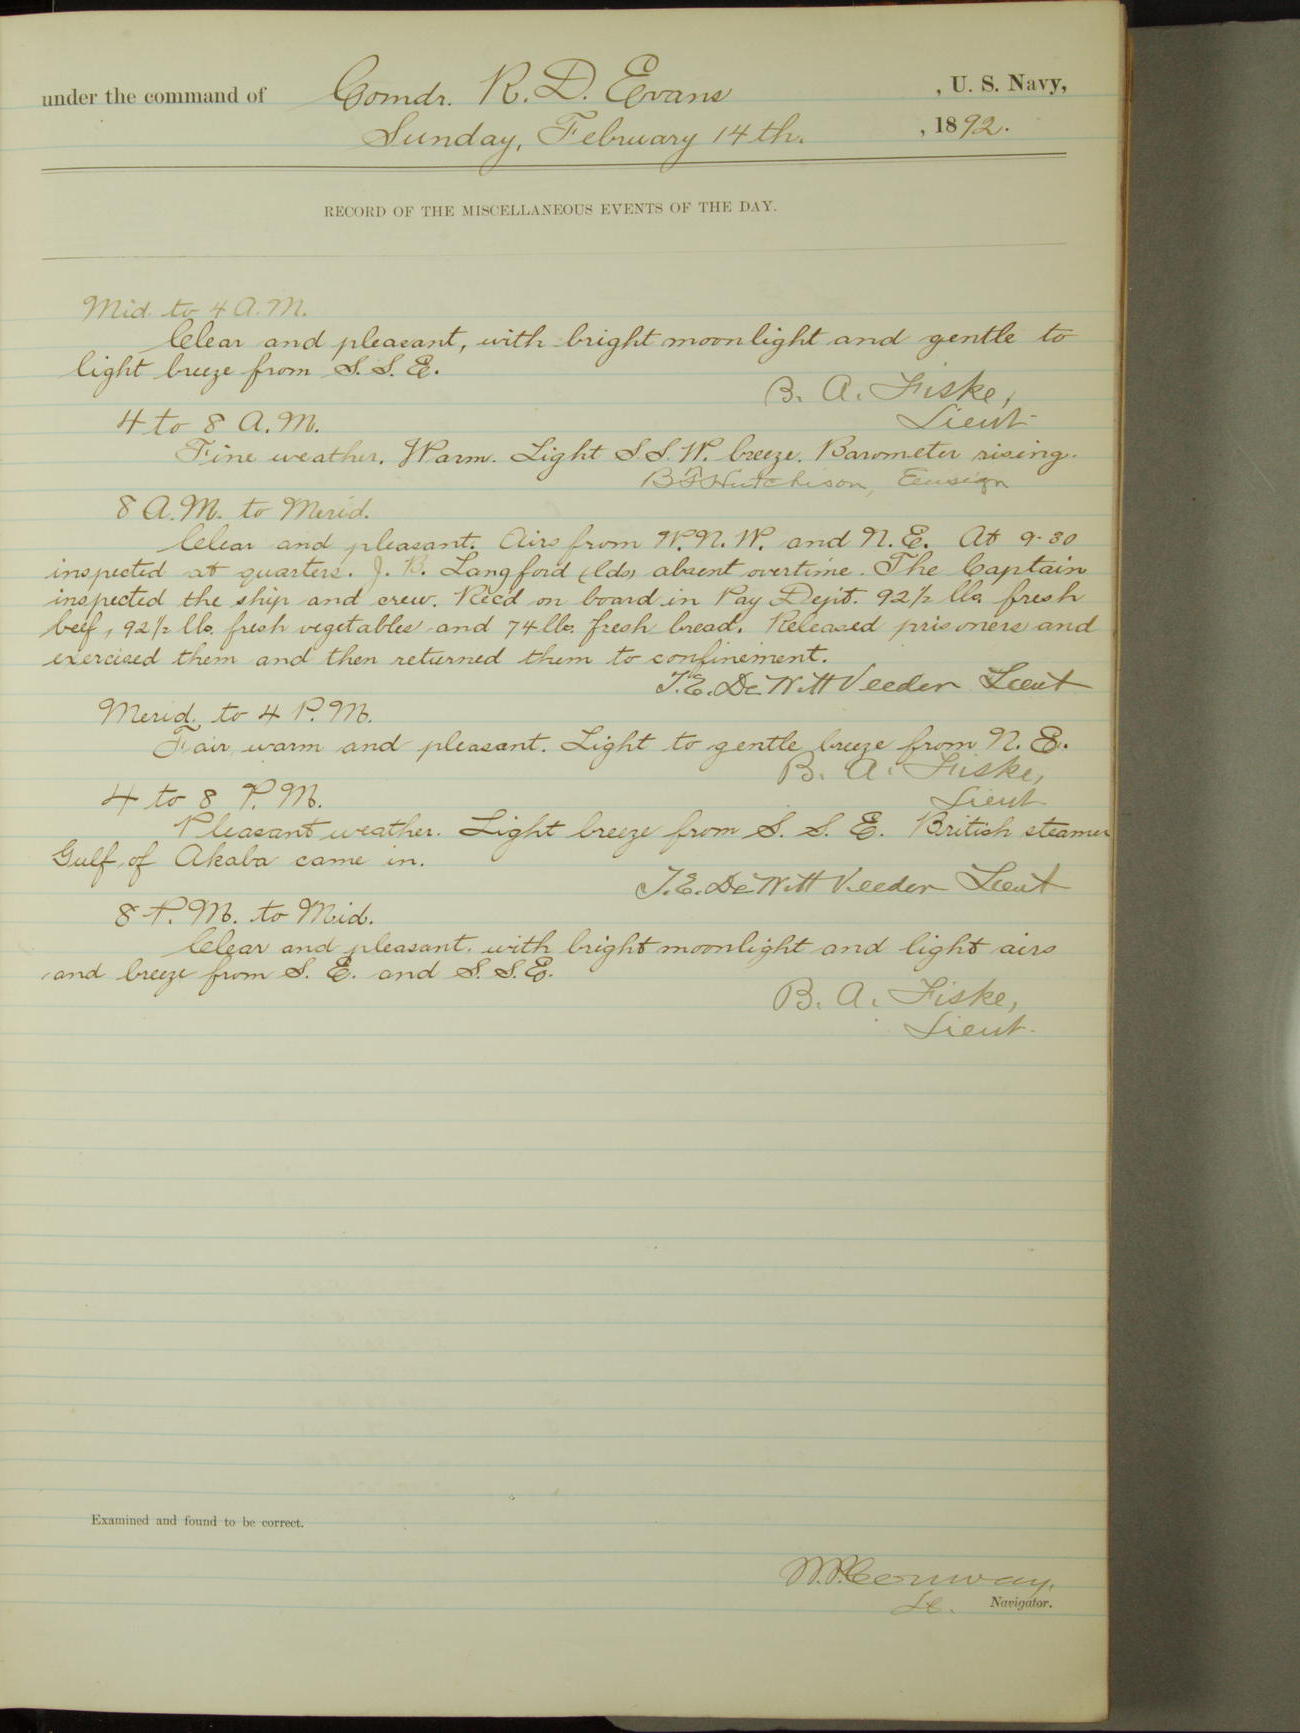 under the command of Comdr. R. D. Evans , U. S. Navy,
Sunday, February 14th. , 1892.
RECORD OF THE MISCELLANEOUS EVENTS OF THE DAY.
Mid. to 4 A.M.
Clear and pleasant, with bright moonlight and gentle to
light breeze from S. S. E.
B. A. Fiske,
Lieut.
4 to 8 A.M.
Fine weather. Warm. Light S.S.W. breeze. Barometer rising.
B F Hutchison, Ensign
8 A.M. to Merid.
Clear and pleasant. Airs from W.N.W. and N.E. At 9-30
inspected at quarters. J. B. Langford (lds) absent overtime. The Captain
inspected the ship and crew. Rec'd on board in Pay Dept. 92½ lbs. fresh
beef, 92½ lbs. fresh vegetables and 74 lbs. fresh bread. Released prisoners and
exercised them and then returned them to confinement.
T.E. DeWitt Veeder Lieut
Merid. to 4 P.M.
Fair, warm and pleasant. Light to gentle breeze from N. E.
B. A. Fiske,
Lieut
4 to 8 P.M.
Pleasant weather. Light breeze from S. S. E. British steamer
Gulf of Akaba came in.
T.E. DeWitt Veeder Lieut
8 P.M. to Mid.
Clear and pleasant. with bright moonlight and light airs
and breeze from S. E. and S. S.E.
B. A. Fiske,
Lieut.
Examined and found to be correct.
W.P. Conway,
Lt. Navigator.